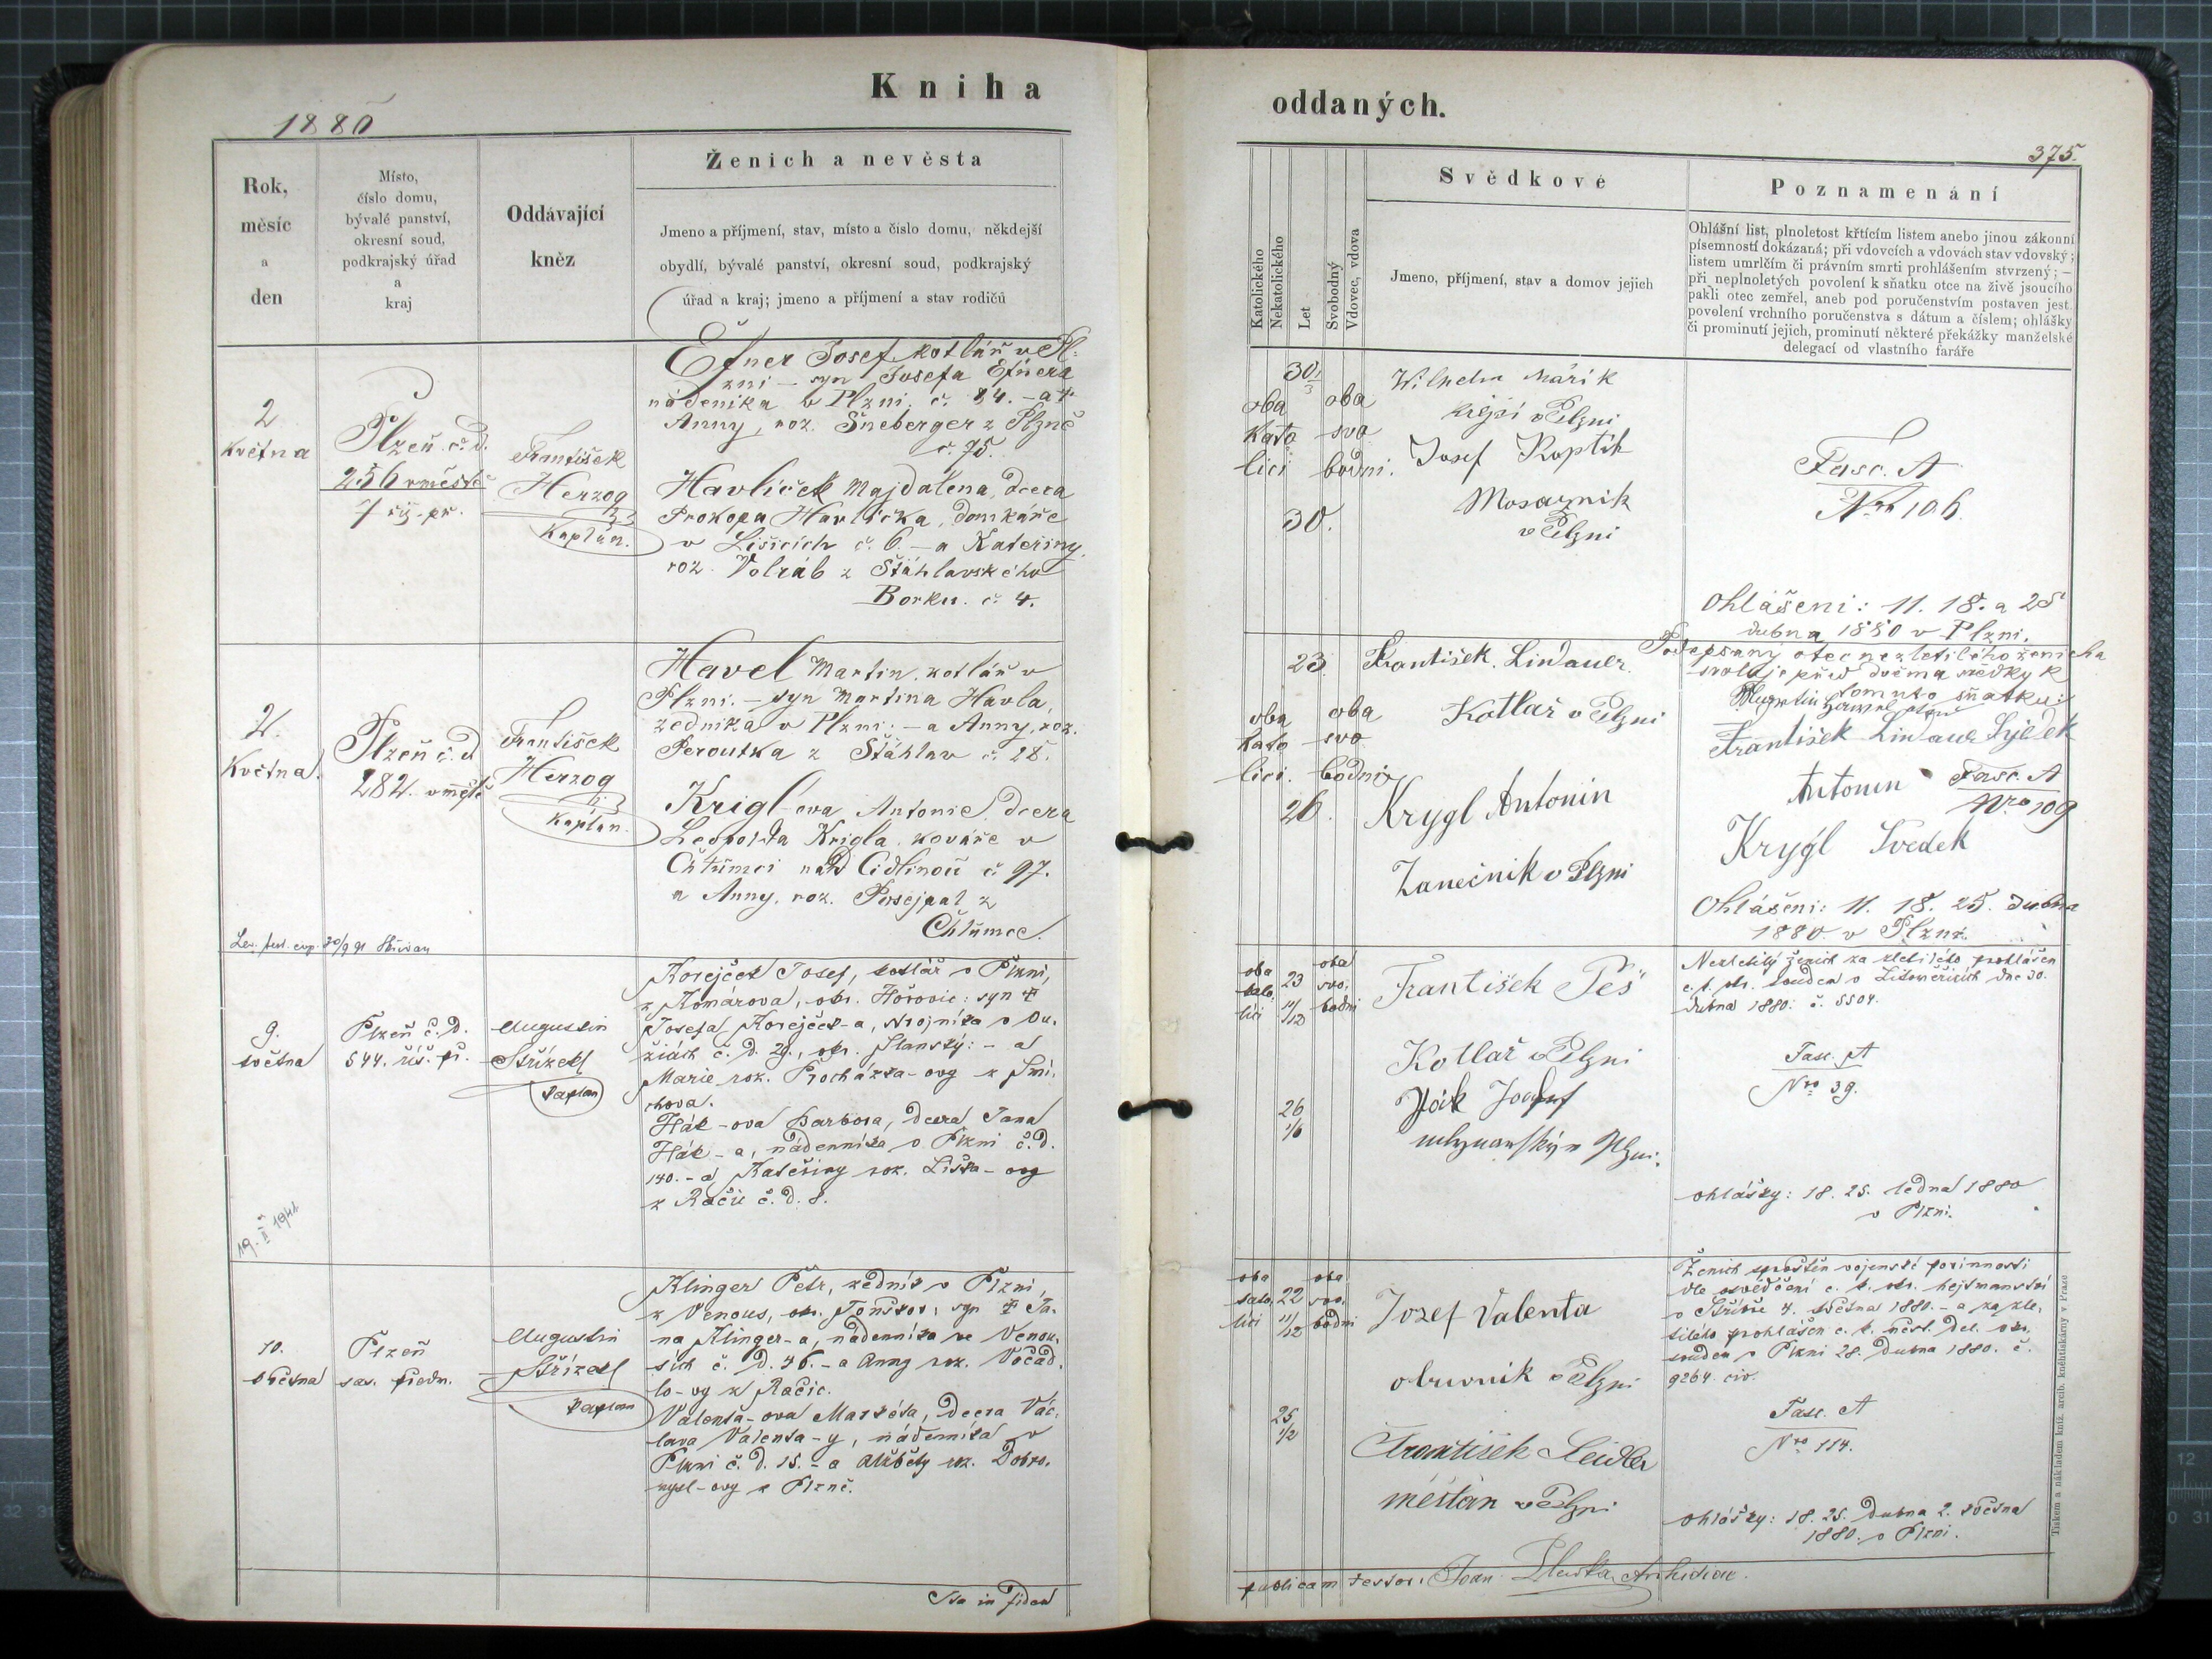 Kniha
1880
Rok,
měsíc
a
den
Místo,
číslo domu,
bývalé panství,
okresní soud,
podkrajský úřad
a
kraj
Oddávající
kněz
Ženich a nevěsta
Jmeno a příjmení, stav, místo a číslo domu, někdejší
obydlí, bývalé panství, okresní soud, podkrajský
úřad a kraj; jmeno a příjmení a stav rodičů
2
Května
Plzeň č. d.
256 v městě
František
Herzog
Kaplan.
Efner Josef kotlář v Pl-
zni – syn Josefa Efnera
nádeníka v Plzni č. 84. – a
Anny, roz. Šneberger z Plzně
č. 75.
Havlíček Majdalena, dcera
Prokopa Havlíčka, domkáře
v Lišicích č. 6. – a Kateřiny,
roz. Volráb z Štáhlavského
Borku. č. 4.
2.
Května.
Plzeň č. d
282. v městě
František
Herzog
Kaplan.
Havel Martin, kotlář v
Plzni. – syn Martina Havla,
zedníka v Plzni: – a Anny, roz.
Peroutka z Štáhlav č. 28.
Krigl-ova Antonie, dcera
Leopolda Krigla, kováře v
Chlumci nad Cidlinou č. 97.
a Anny, roz. Posejpal z
Chlumce.
9.
května
Plzeň č. d.
544. říš. př.
Augustin
Střízek
Kaplan
Korejček Josef, kotlář v Plzni,
z Komárova, okr. Hořovic: syn †
Josefa Korejček-a,
č. d. 29., okr. Slanský: – a
Marie roz. Procházka-ovy z Smí-
chova.
Hák-ova Barbora, dcera Jana
Hák-a, nádenníka v Plzni č. d.
140. – a Kateřiny roz. Liška-ovy
z Račic č. d. 8.
19. II 1941
10.
května
Plzeň
sas. předm.
Augustin
Střízek
Kaplan
Klinger Petr, zedník v Plzni,
z Venous, okr. syn † Ja-
na Klinger-a, nádenníka ve Venou-
sích č. d. 46. – a Anny roz. Vočád-
lo-vy z Račic.
Valenta-ova Markéta, dcera Vác-
lava Valenta-y, nádenníka v
Plzni č. d. 15. – a Alžběty roz. Dobro-
mysl-ovy z Plzně.
Ita in fidem
oddaných.
375.
Katolického
Nekatolického
Let
Svobodný
Vdovec, vdova
Svědkové
Jmeno, příjmení, stav a domov jejich
Poznamenání
Ohlášní list, plnoletost křtícím listem anebo jinou zákonní
písemností dokázaná; při vdovcích a vdovách stav vdovský;
listem umrlčím či právním smrti prohlášením stvrzený; –
při neplnoletých povolení k sňatku otce na živě jsoucího
pakli otec zemřel, aneb pod poručenstvím postaven jest.
povolení vrchního poručenstva s dátum a číslem; ohlášky
či prominutí jejich, prominutí některé překážky manželské
delegací od vlastního faráře
30 1/3
oba oba
kato svo
líci bodni.
30.
Wilhelm Mařík
krejší v Plzni
Josef Koptík
Mosaznik
v Plzni
Fasc. A
Nro 106.
Ohlášeni: 11. 18. a 25
dubna 1880 v Plzni.
23
oba oba
kato svo
líci. bodni
26.
František Lindauer
Kotlař v Plzni
Krygl Antonin
Zanečnik v Plzni
Podepsaný otec nezletilého ženicha
svoluje před dvěma svědky k
tomuto sňatku:
František Lindauer Svědek
Antonin
Fasc. A
Nro 109
Krygl Svedek
Ohlášeni: 11. 18. 25. dubna
1880 v Plzni.
oba oba
kato. 23 svo.
líci 11/12 bodni
26
1/6
František Peš
Kotlař v Plzni
Hák Josef
mlynarský v Plzni.
Nezletilý ženich za zletilého prohlášen
c. k. okr. soudem v Litoměřicích dne 30.
dubna 1880. č. 5504.
Fasc. A
Nro 39.
ohlášky: 18. 25. ledna 1880
v Plzni.
oba oba
kato. 22 svo.
líci 11/12 bodni
25
1/2
Jozef Valenta
obuvnik v Plzni
František Seidler
měštan v Plzni
Ženich sproštěn vojenské povinnosti
dle osvědčení c. k. okr. hejtmanství
v Stříbře 4. května 1880. – a za zle-
tilého prohlášen c. k. měst. del. okr.
soudem v Plzni 28. dubna 1880. č.
9264. civ.
Fasc. A
Nro 114.
ohlášky: 18. 25. dubna 2. května
1880. v Plzni.
publicam testor:
Tiskem a nákladem kníž. arcib. knihtiskárny v Praze